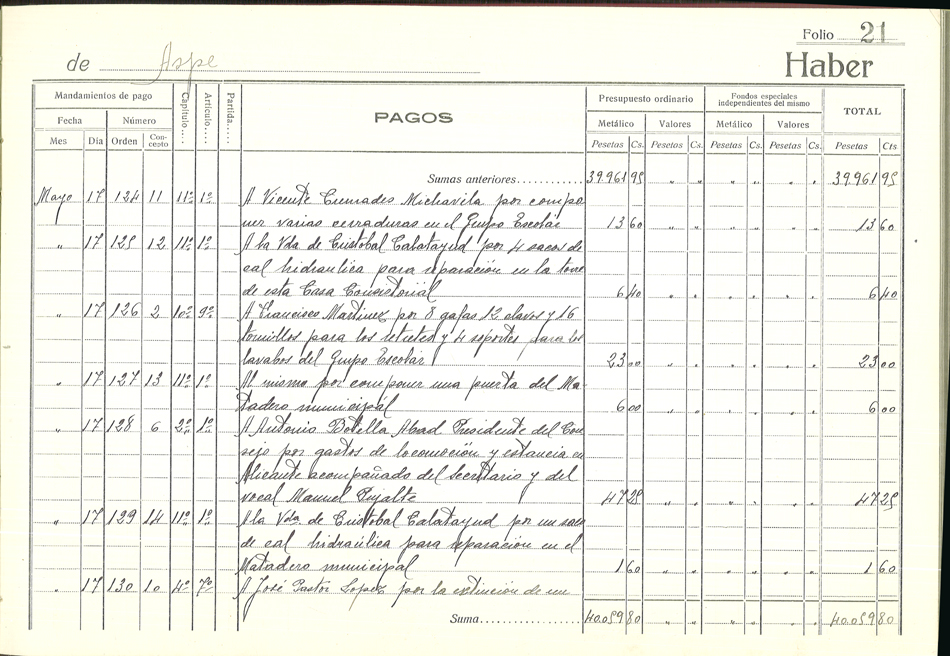 Folio 21
de Aspe Haber
Mandamientos de pago Capítulo.... Artículo.... Partida.... PAGOS Presupuesto ordinario Fondos especiales independientes del mismo TOTAL
Fecha Número Metálico Valores Metálico Valores
Mes Día Orden Concepto Pesetas Cs. Pesetas Cs. Pesetas Cs. Pesetas Cs. Pesetas Cts
Sumas anteriores............ 39.961 95 " " " " " " 39.961 95
Mayo 17 124 11 11º 1º A Vicente Cremades Michavila por compo
ner varias cerraduras en el Grupo Escolar 13 60 " " " " " " 13 60
" 17 125 12 11º 1º A la Vda de Cristobal Calatayud por 4 sacos de
cal hidraulica para reparación en la torre
de esta Casa Consistorial 6 40 " " " " " " 6 40
" 17 126 2 10º 9º A Francisco Martinez por 8 gafas 12 clavos y 16
tornillos para los retretes y 4 soportes para los
lavabos del Grupo Escolar 23 00 " " " " " " 23 00
" 17 127 13 11º 1º Al mismo por componer una puerta del Ma-
tadero municipal 6 00 " " " " " " 6 00
" 17 128 6 2º 1º A Antonio Botella Abad Presidente del Con
sejo por gastos de locomoción y estancia en
Alicante acompañado del Secretario y del
vocal Manuel Pujalte 47 25 " " " " " " 47 25
" 17 129 14 11º 1º A la Vda de Cristobal Calatayud por un saco
de cal hidraúlica para reparación en el
Matadero municipal 1 60 " " " " " " 1 60
" 17 130 10 4º 7º A José Pastor Lopez por la extinción de un
Suma.................. 40.059 80 " " " " " " 40.059 80